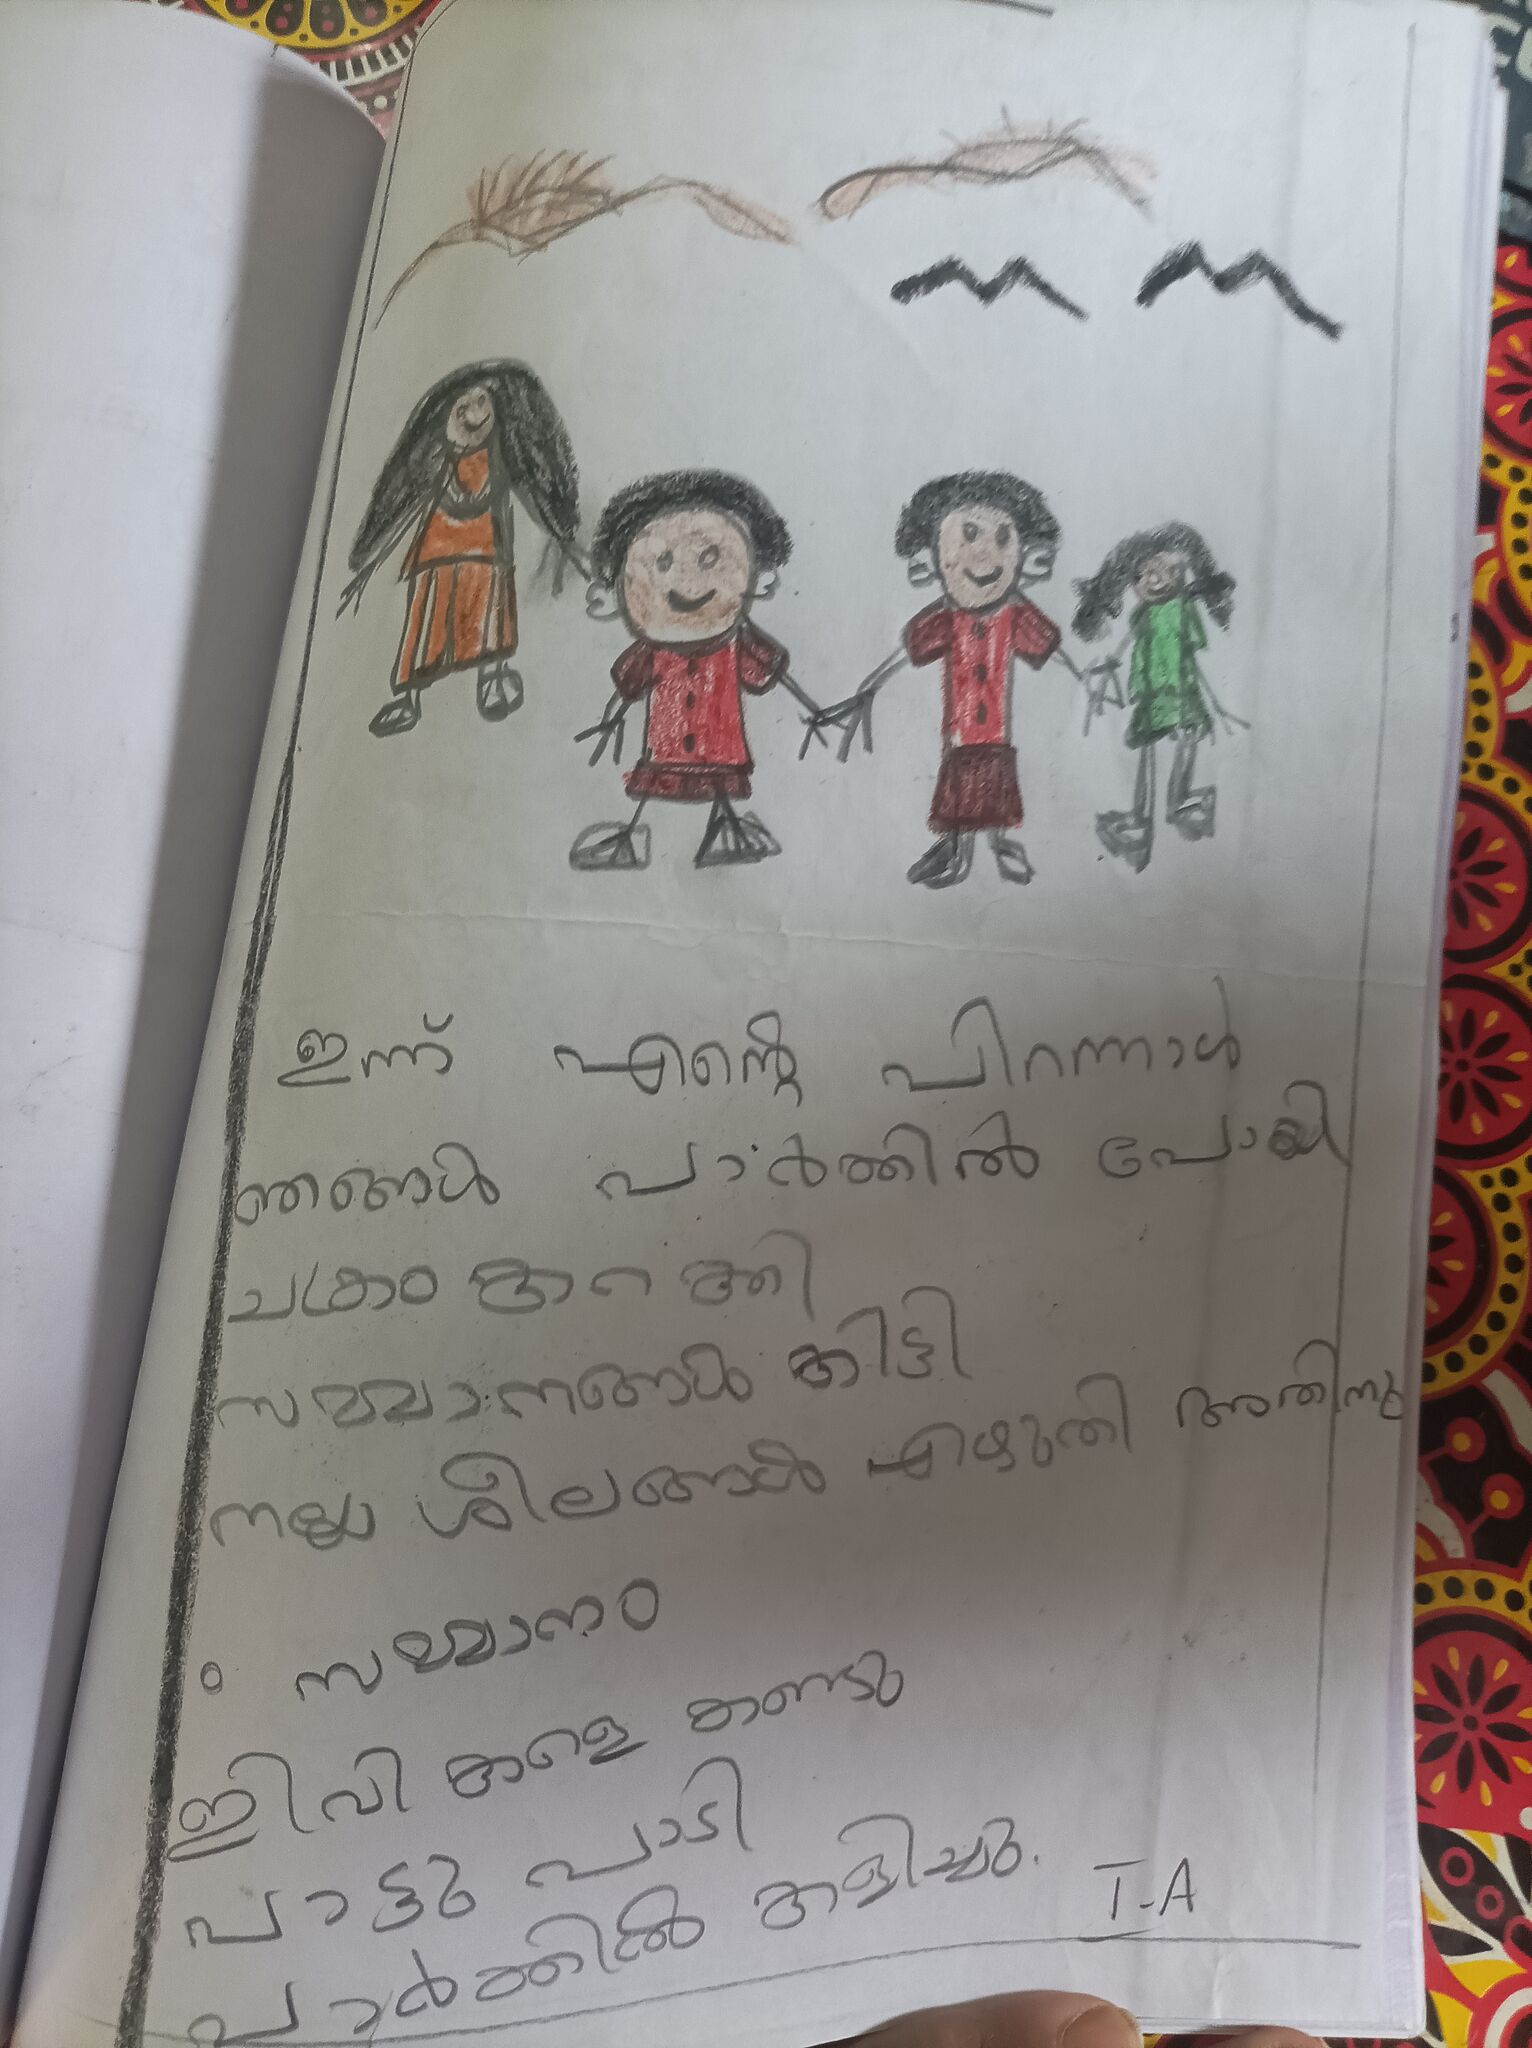 ഇന്ന് എന്റെ പിറന്നാൾ
ഞങ്ങൾ പാർക്കിൽ പോയി
ചക്രം കറക്കി
സമ്മാനങ്ങൾ കിട്ടി
നല്ല ശീലങ്ങൾ എഴുതി അതിനു
സമ്മാനം
ജീവികളെ കണ്ടു
പാട്ടു പാടി
പാർക്കിൽ കളിച്ചു.
T-A